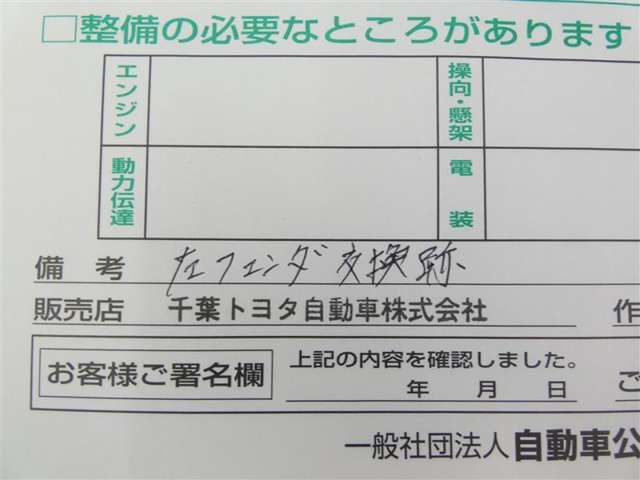 □整備の必要なところがあります
エンジン
操向・懸架
動力伝達
電装
備考 左フェンダ交換跡
販売店 千葉トヨタ自動車株式会社 作
お客様ご署名欄
上記の内容を確認しました。
年 月 日 ご
一般社団法人 自動車公